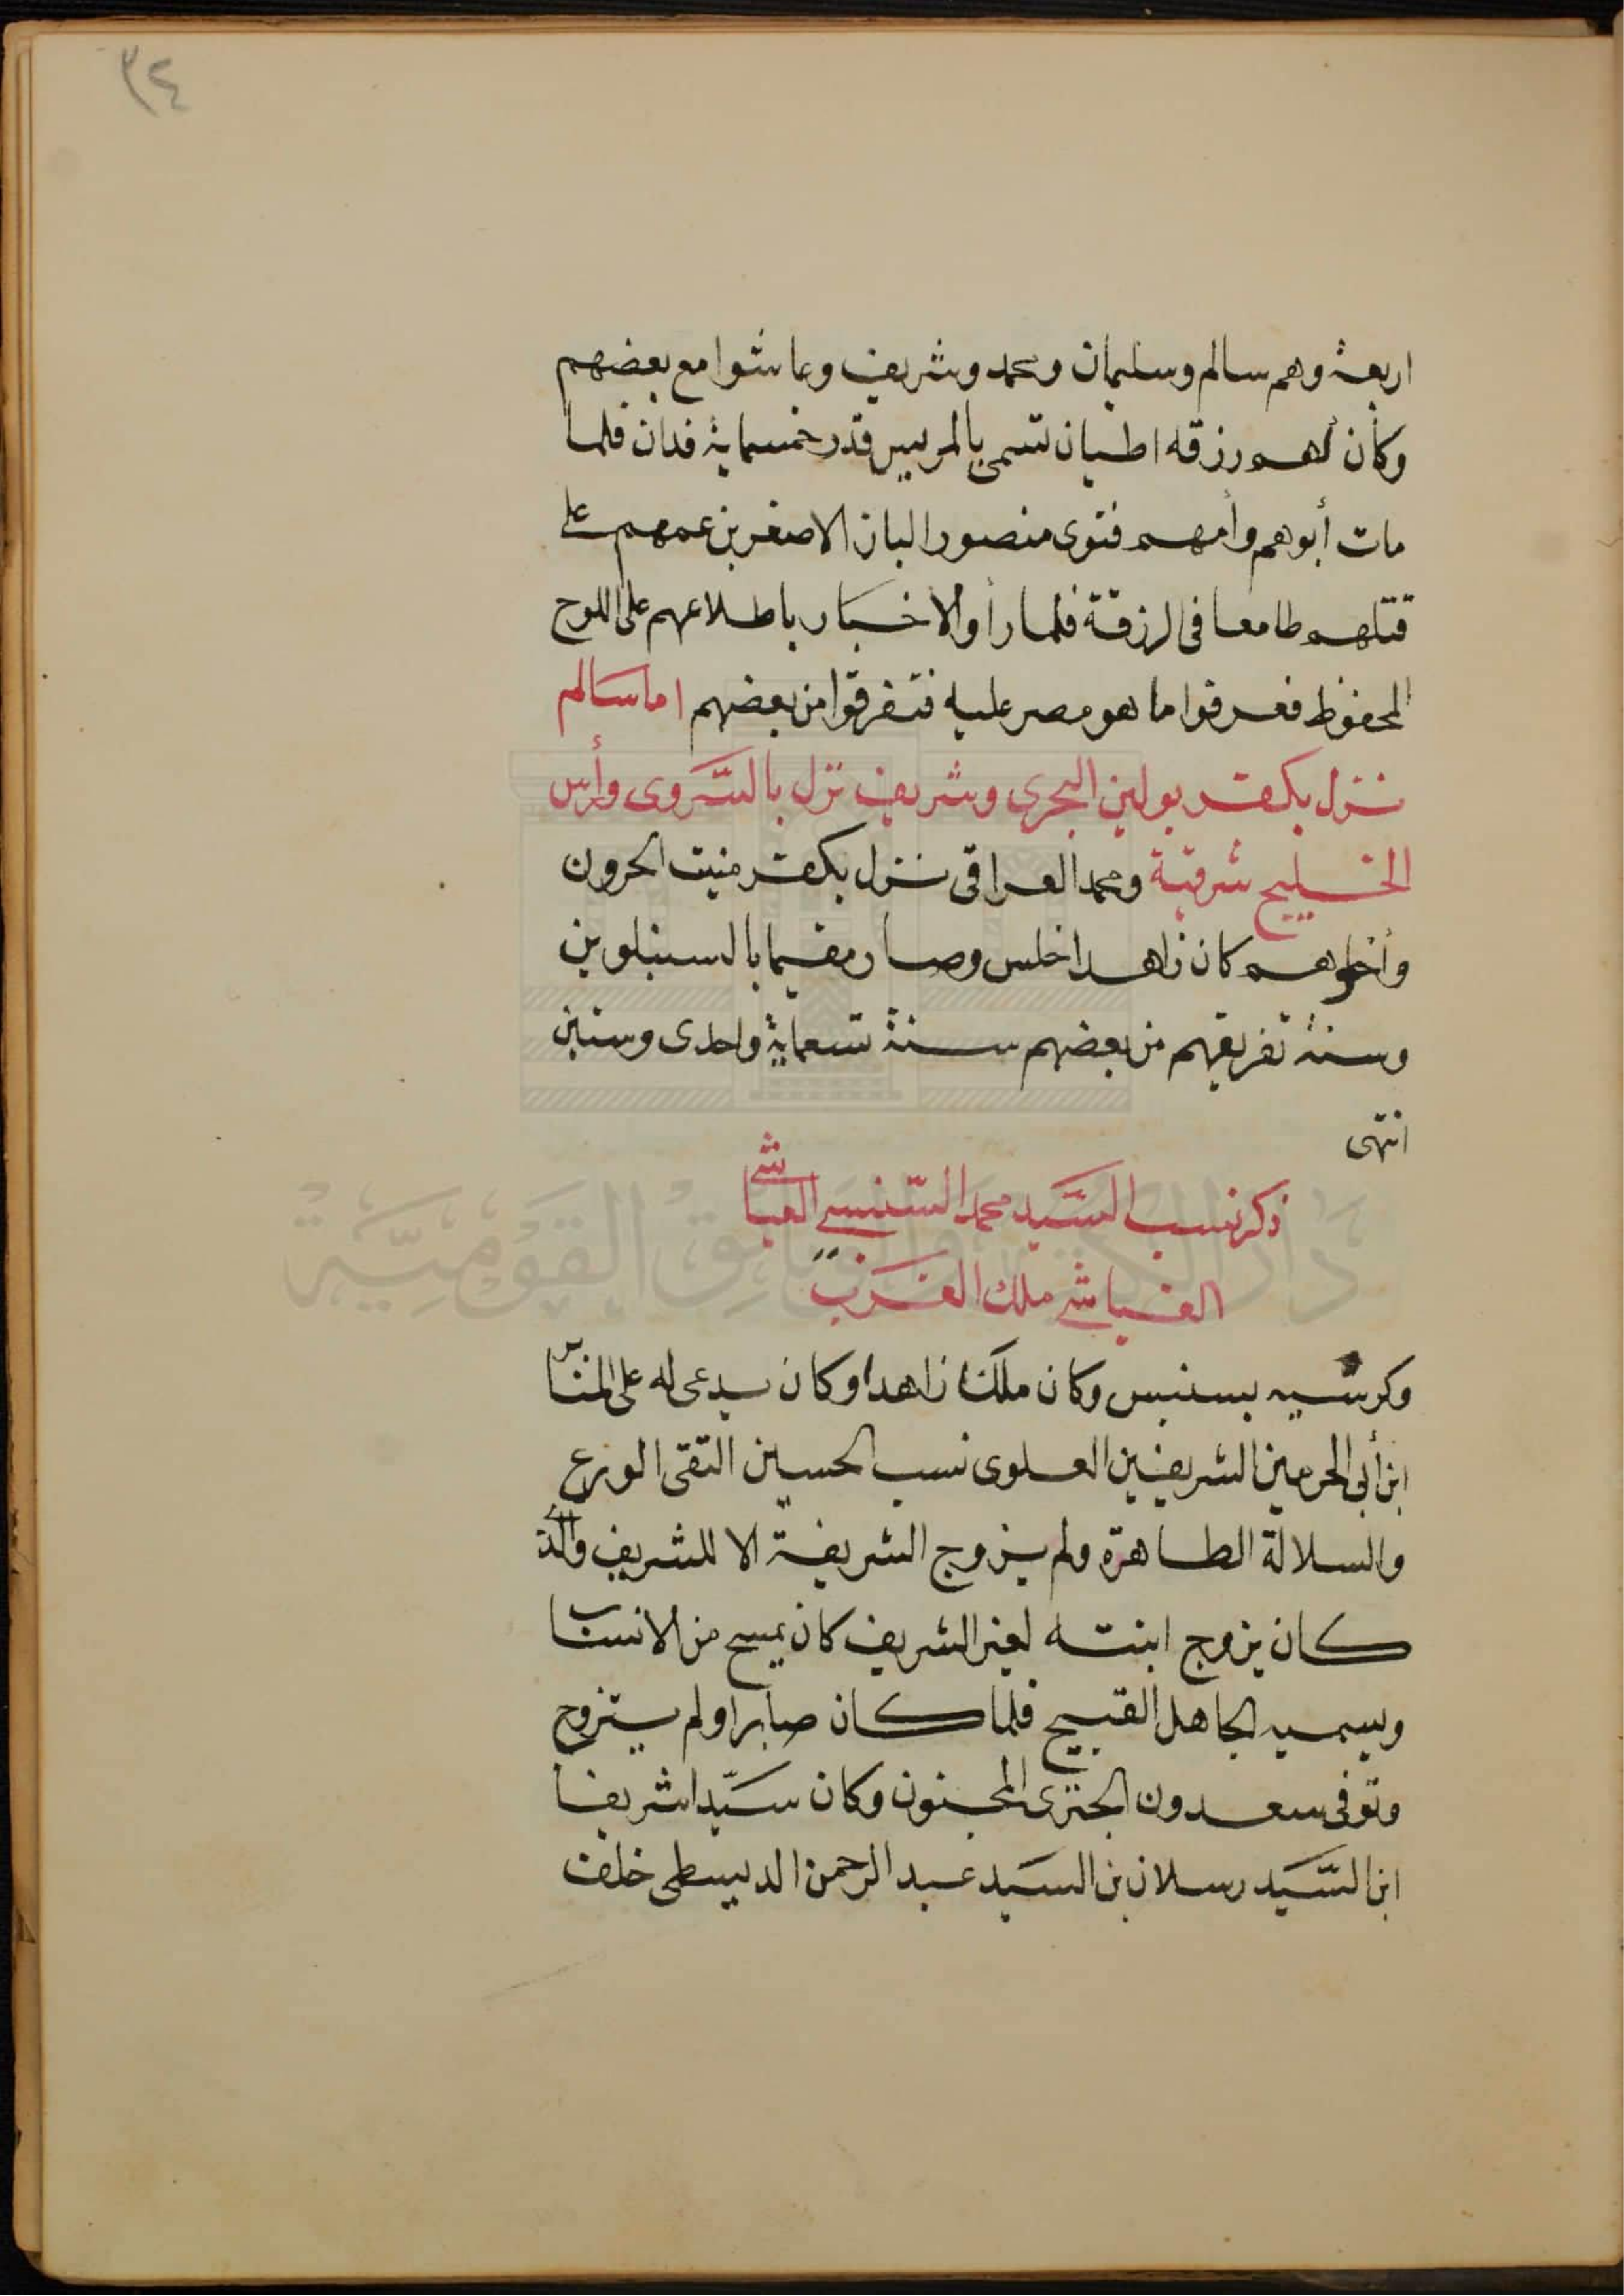 ٣٤
اربعة وهم سالم وسليمان ومحمد وشريف وعاشوا مع بعضهم
وكان لهم رزقه اطيان تسمى بالمربيين قدر خمسماية فدان فلما
مات أبوهم وأمهم فنوى منصور الباز الاصغر بن عمهم على
قتلهم طامعا فى الرزقة فلما رأوا الاخبار باطلاعهم على اللوح
المحفوظ فعرفوا ما هو مصر عليه فتفرقوا من بعضهم اما سالم
نزل بكفر بولين البحرى وشريف نزل بالسروى وأرس
الخليج شرقية ومحمد العراقى نزل بكفر منيت الحرون
وأخوهم كان زاهدا خلس وصار مقيما بالسنبلوين
وسنة تفريقهم من بعضهم سنة تسعماية واحدى وستين
انتهى
ذكر نسب السيد محمد السنبسى العباشى
الغياشى ملك الغرب
وكرسيه بسنبس وكان ملكا زاهدا وكان يدعى له على المنابر
ابن أبى الحرمين الشريفين العلوى نسب الحسين التقى الورع
والسلالة الطاهرة ولم يزوج الشريفة الا للشريف والذى
كان يزوج ابنته لغير الشريف كان يمسح من الانساب
ويسميه الجاهل القبيح فلما كان صابرا ولم يتزوج
وتوفى سعدون الجنزى المجنون وكان سيدا شريفا
ابن السيد رسلان بن السيد عبد الرحمن الدبيسطى خلفت
دار الكتب والوثائق القومية